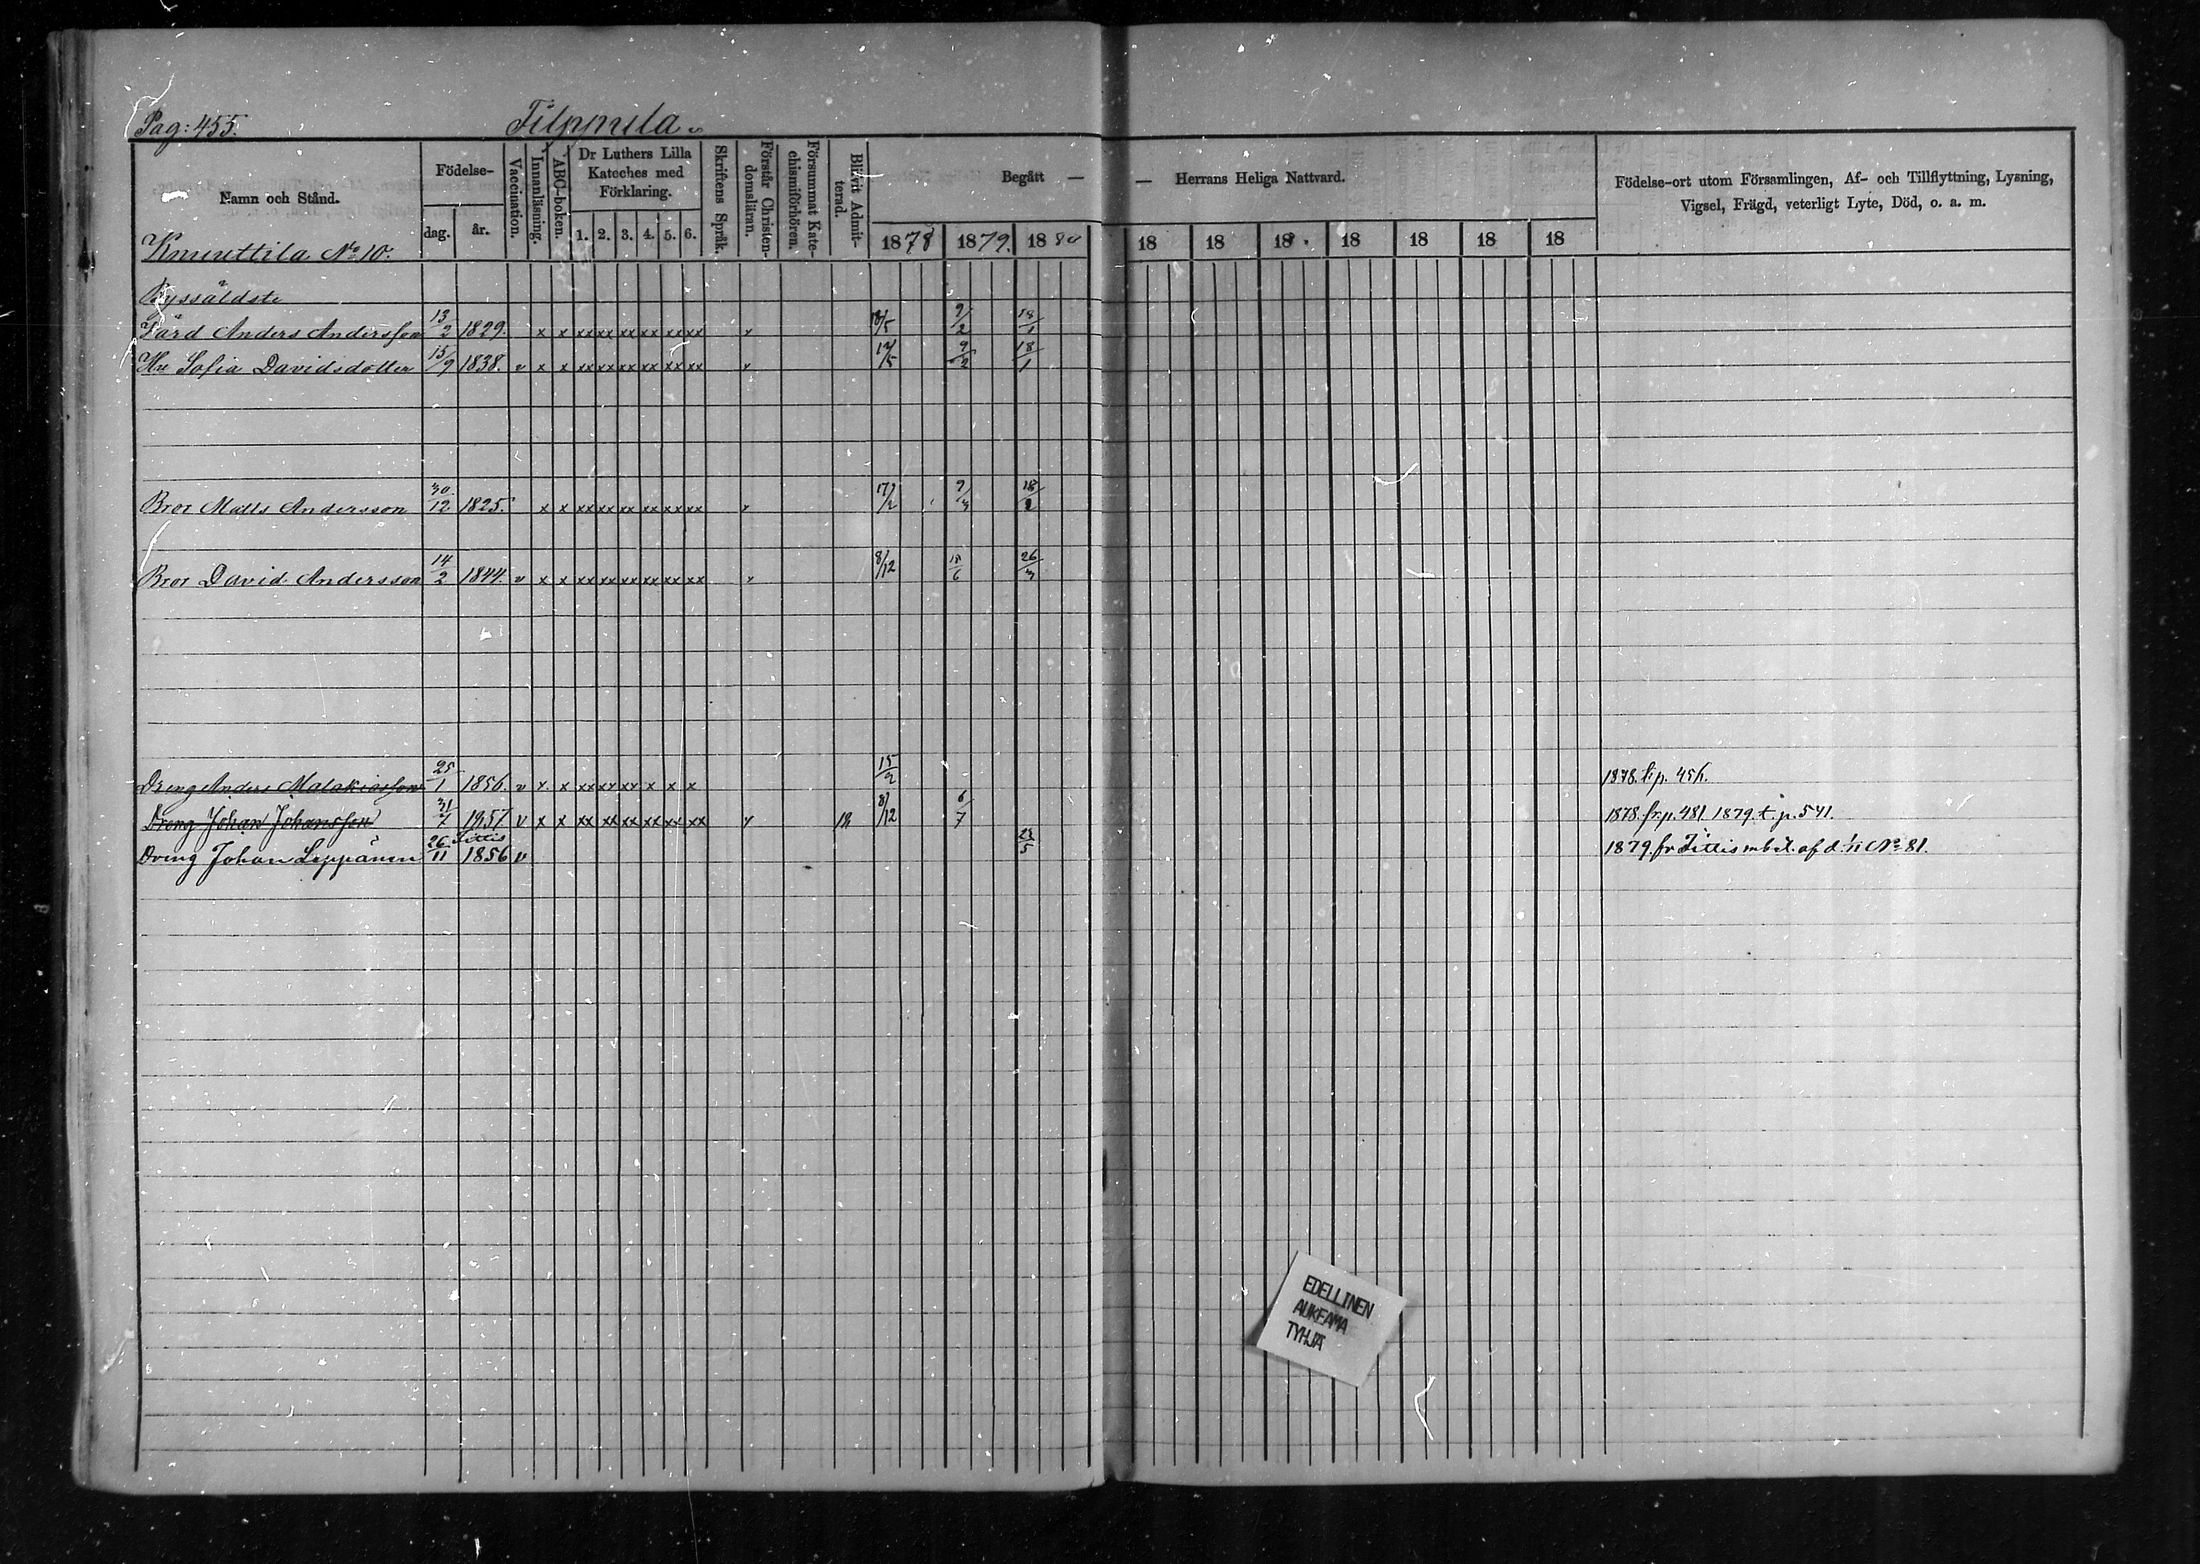 Pag: 455. Filppula
Namn och Stånd. Födelse- dag. år. Vaccination. Innanläsning. ABC-boken. Dr Luthers Lilla Kateches med Förklaring. 1. 2. 3. 4. 5. 6. Skriftens Språk. Förstår Christendomsläran. Försummat Katechismiförhören. Blifvit Admitterad. Begått — — Herrans Heliga Nattvard. Födelse-ort utom Församlingen, Af- och Tillflyttning, Lysning, Vigsel, Frägd, veterligt Lyte, Död, o. a. m.
Knuuttila No 10. 1878 1879. 1880 18 18 18 18 18 18 18
Byssåldste
Anders Andersson 13/2 1829. x x xx xx xx xx xx xx v 9/2 18/1
Hu Sofia Davidsdotter 15/9 1838. v x x xx xx xx xx xx xx v 9/2 18/1
Bror Matts Andersson 30/12 1825. x x xx xx xx xx xx xx v 17/2
Bror David Andersson 14/2 1844. v x x xx xx xx xx xx xx v 8/12 15/6 26/3
Dreng Anders Malakiasson 25/1 1856. v x x xx xx xx x x x 15/2 1878. t. p. 456.
Dreng Johan Johansson 31/7 1857 v x x xx xx xx xx xx xx v 8/12 6/7 1878. fr. p. 481 1879. t. p. 541.
Dreng Johan Leppänen 26/11 Iittis 1856 v 23/5 1879. fr Iittis m b. af d. 1/11 No 81.
EDELLINEN
AUKEAMA
TYHJÄ